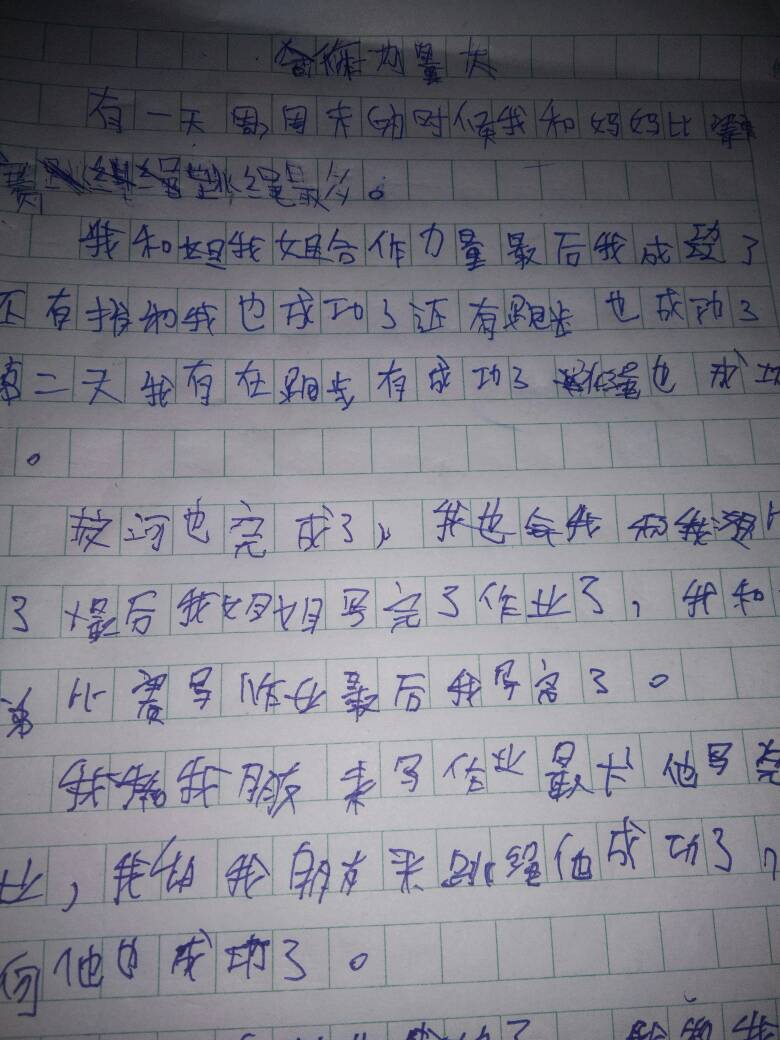 合作力量大
有一天周周末的时候我和妈妈比
赛绳最多。
我和姐我姐合作力量最后我成功了
还有捎和我也成功了还有跑步也成功了
第二天我有在跑步有成功了也成功
。
拔河也完成了,我也和我
了最后我姐姐写完了作业了,我和
弟比赛写作业最后我写完了。
我和我朋友来写作业最大他写完
业,我给我朋友来跳绳他成功了,
何他也成功了。
成功了 我和我